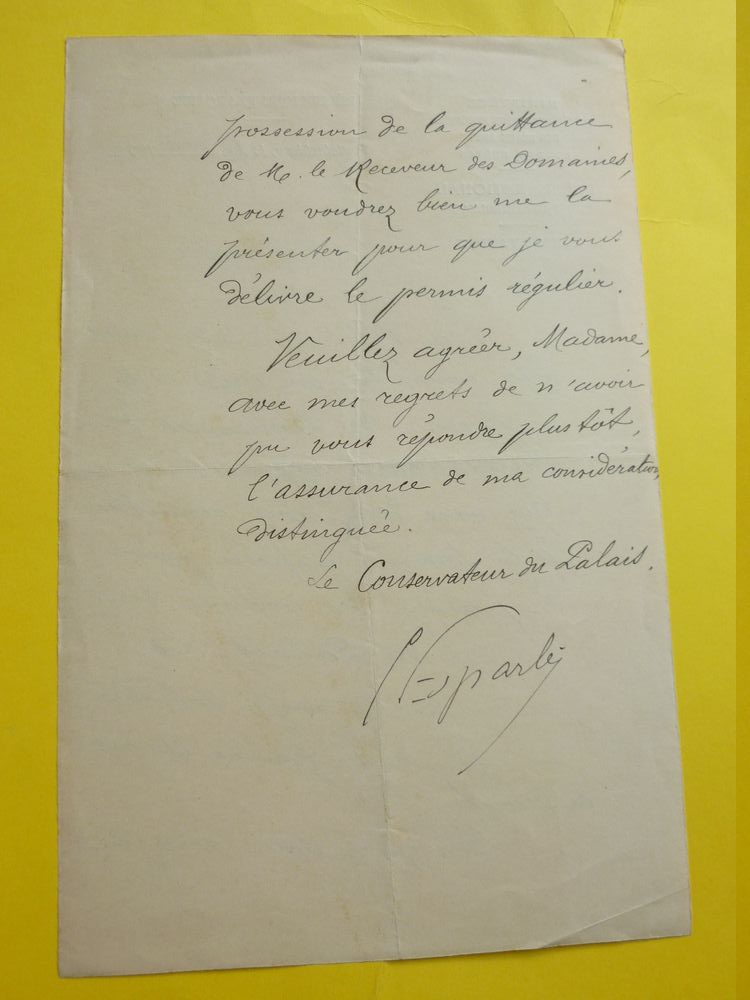 possession de la quittance
de M. le Receveur des Domaines,
vous voudrez bien me la
présenter pour que je vous
délivre le permis régulier.
Veuillez agréer, Madame,
avec mes regrets de n'avoir
pu vous répondre plus tôt,
l'assurance de ma considération
distinguée.
Le Conservateur du Palais.